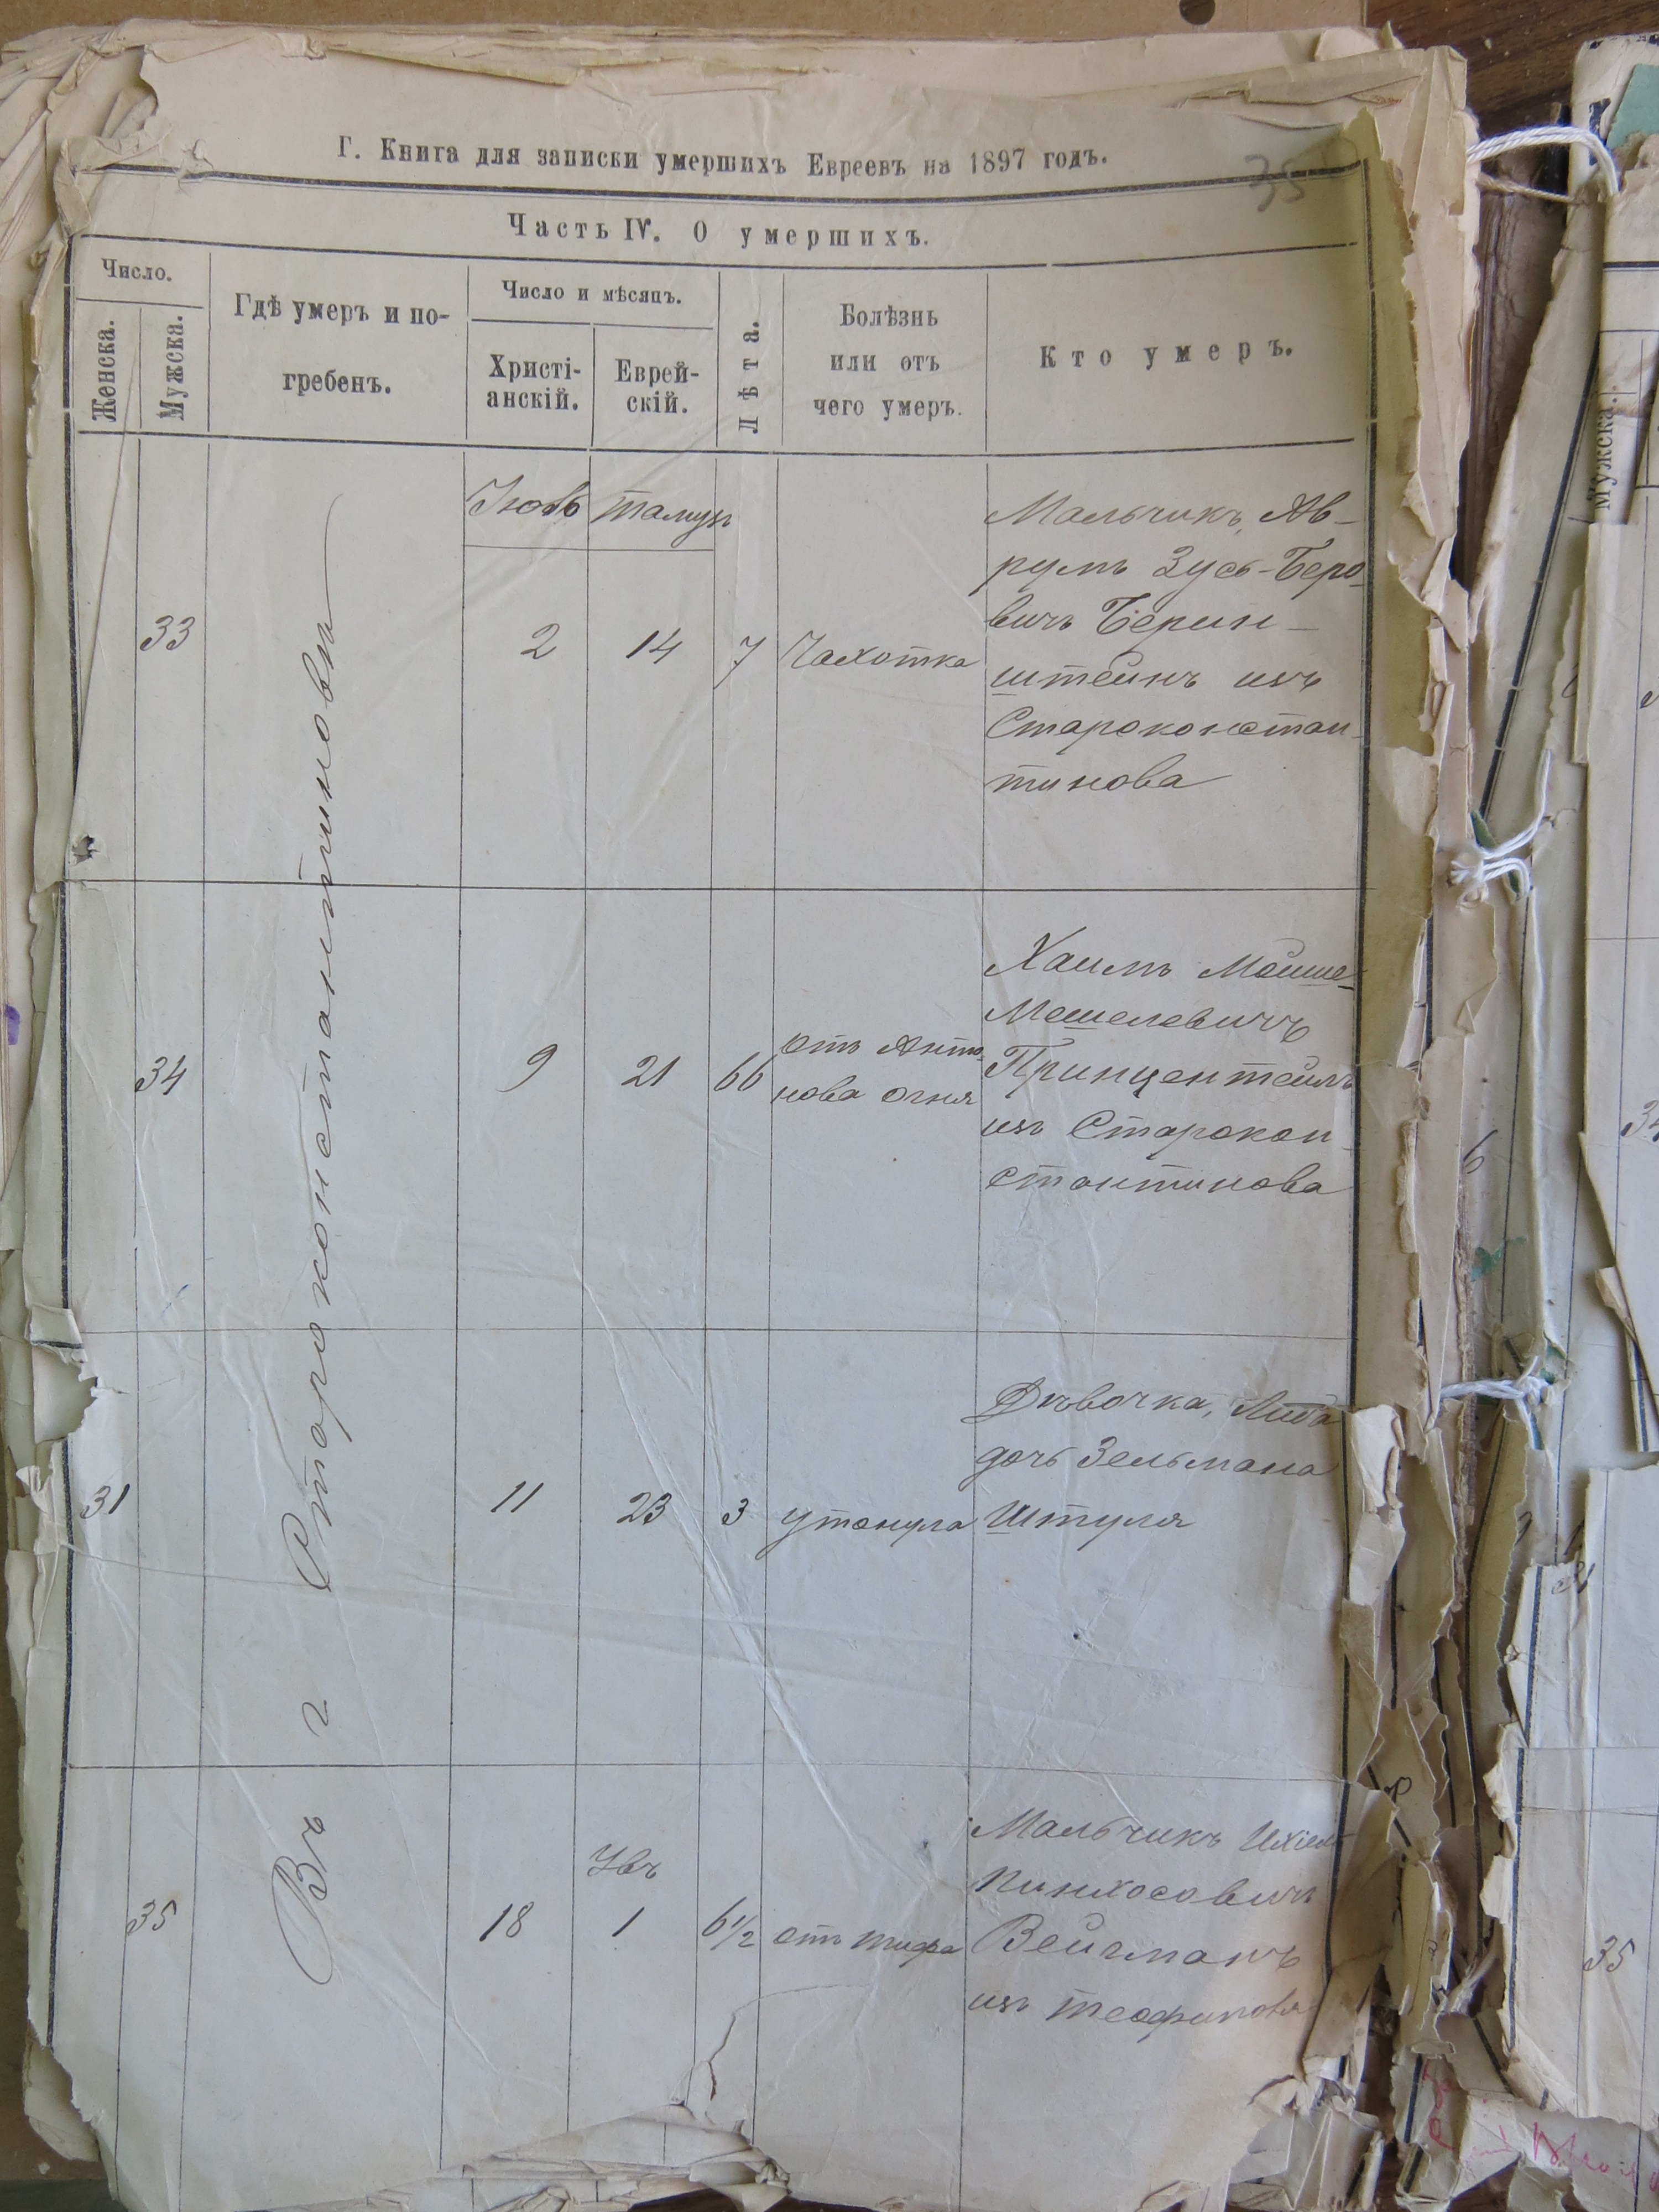 Г. Книга для записки умершихъ Евреевъ на 1897 годъ.
35
Часть IV. О умершихъ.
Число.
Женска.
Мужска.
Гдѣ умеръ и по-
гребенъ.
Число и мѣсяцъ.
Христі-
анскій.
Еврей-
скій.
Лѣта.
Болѣзнь
или отъ
чего умеръ.
Кто умеръ.
Въ г Староконстантиновѣ
Іюль
тамуз
33
2
14
7
Чахотка
Мальчикъ, Ав-
румъ Зусь-Беро-
вичъ Берин-
штейнъ изъ
Староконстан-
тинова
34
9
21
66
отъ Анто-
нова огня
Хаимъ Мойше-
Мешелевичъ
Принцентейлъ
изъ Старокон-
стантинова
31
11
23
3
утонула
Дѣвочка,
дочь Зельмана
Штуля
35
18
Увъ
1
6½
отъ тифа
Мальчикъ Ихіель
Пинхосовичъ
Вейгманъ
изъ
Мужска.
34
31
35
6